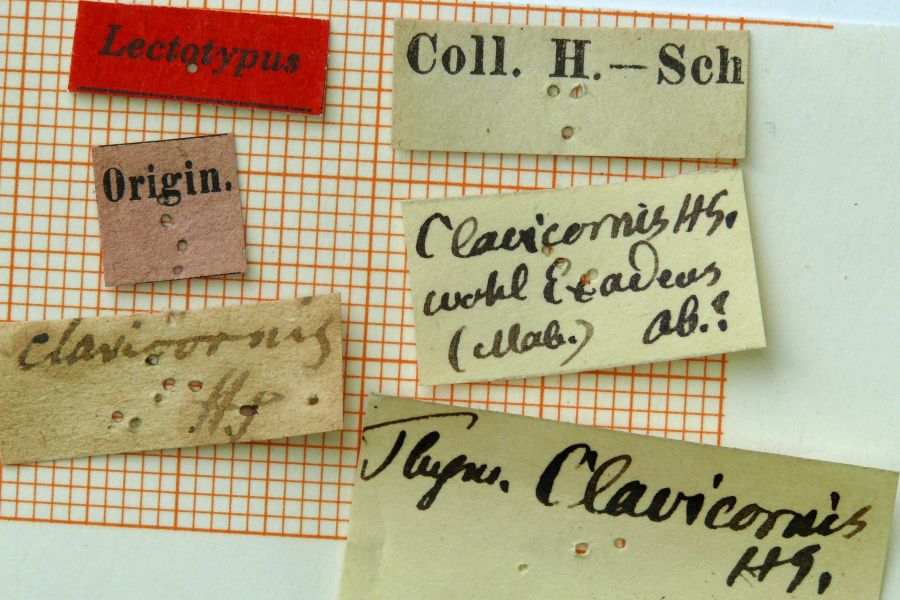 Lectotypus
Coll. H.–Sch
Origin.
Clavicornis HS.
wohl Exadeus
(Mab.) ab.?
clavicornis
HS
Thym. Clavicornis
HS.